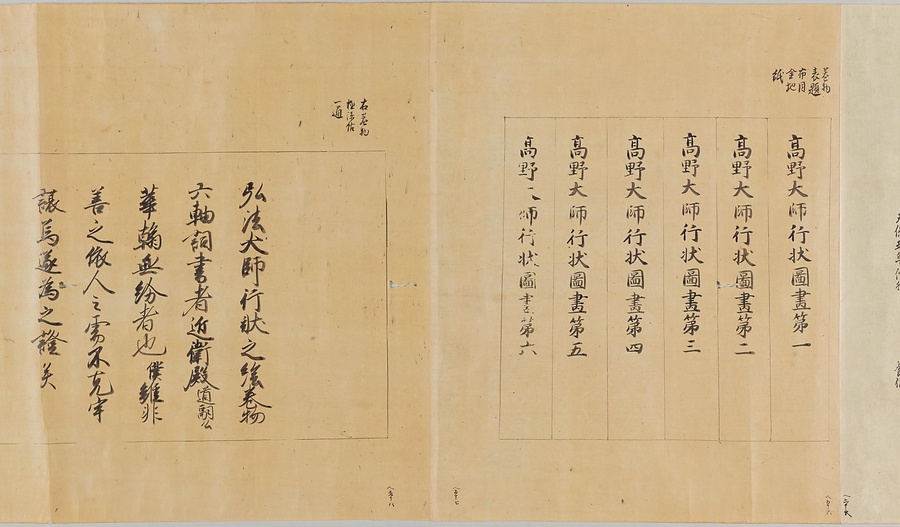 巻物
表題
布目
金地
紙
高野大師行状圖畫第一
高野大師行状圖畫第二
高野大師行状圖畫第三
高野大師行状圖畫第四
高野大師行状圖畫第五
高野大師行状圖畫第六
右巻物
極添帖
一通
弘法大師行状之繪巻物
六軸詞書者近衛殿道嗣公
華翰無紛者也僕雖非
善之依人之需不克牢
讓焉遂為之證矣